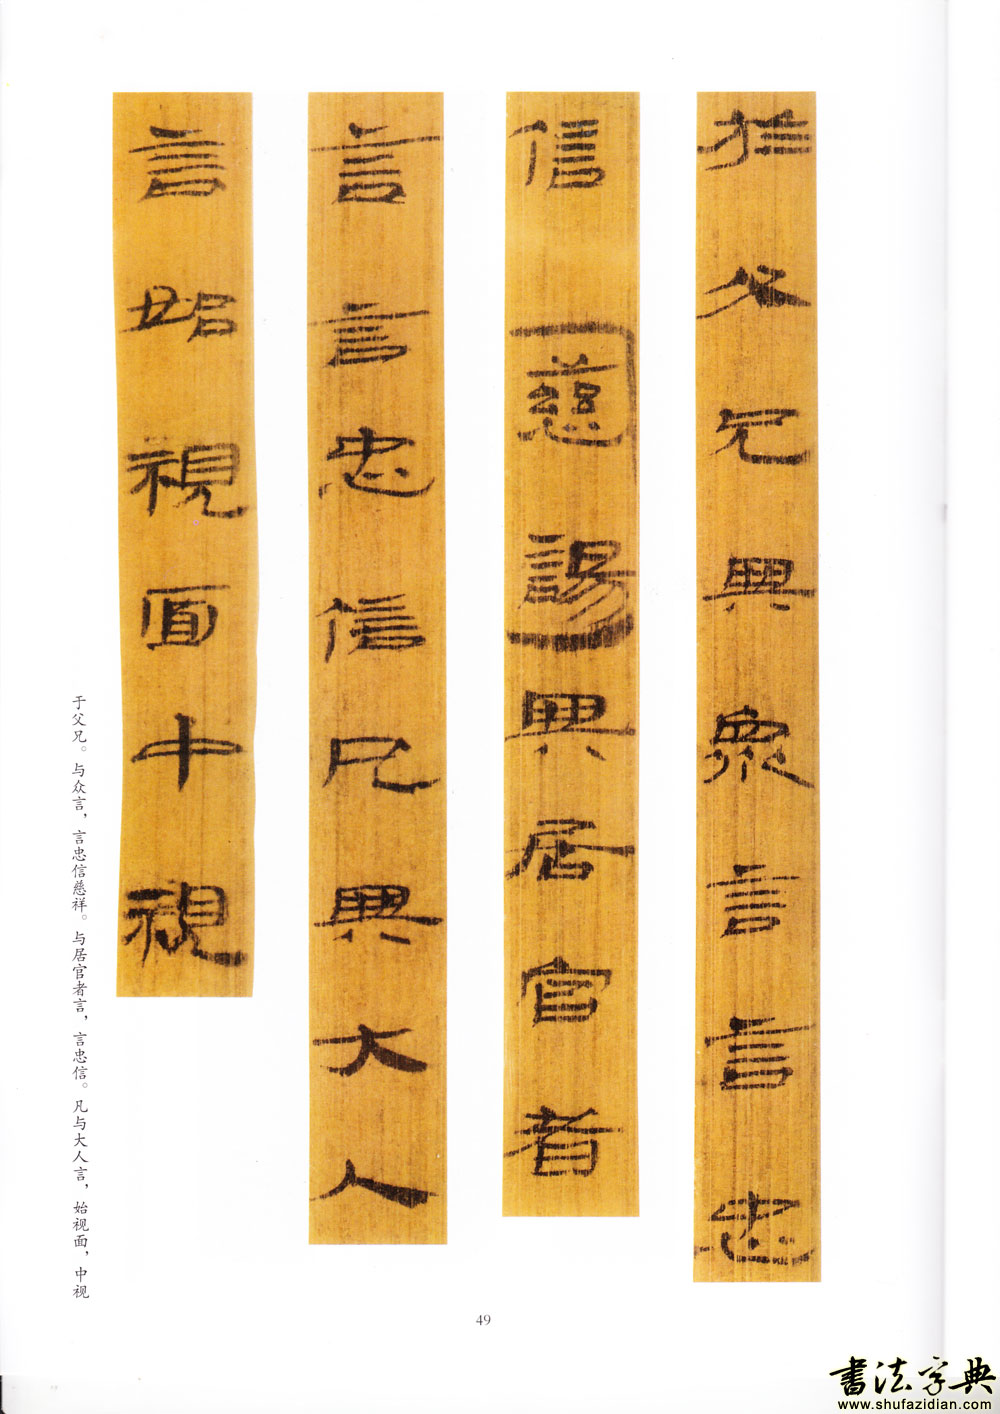 於父兄與眾言言忠
信慈諹與居官者
言言忠信凡與大人
言始視面中視
于父兄。与众言，言忠信慈祥。与居官者言，言忠信。凡与大人言，始视面，中视
49
書法字典
www.shufazidian.com